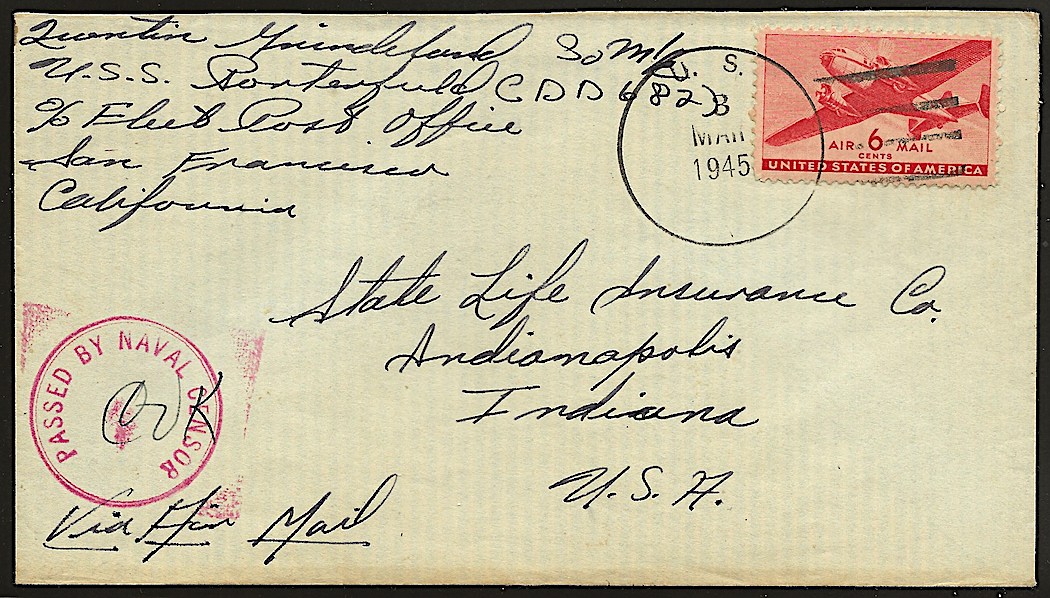 Quentin Grindeland SoM1/c
U.S.S. Porterfield (DD682)
c/o Fleet Post Office
San Francisco
California
U. S.
3
MAR
1945
AIR 6 MAIL
CENTS
UNITED STATES OF AMERICA
State Life Insurance Co.
Indianapolis
Indiana
U.S.A.
PASSED BY NAVAL CENSOR
Via Air Mail